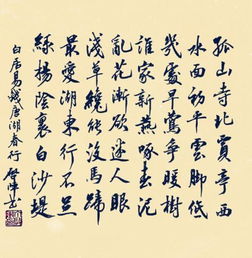 孤山寺北賈亭西
水面初平雲脚低
幾處早鶯爭暖樹
誰家新燕啄春泥
亂花漸欲迷人眼
淺草纔能沒馬蹄
最愛湖東行不足
綠楊陰裏白沙堤
白居易錢唐湖春行